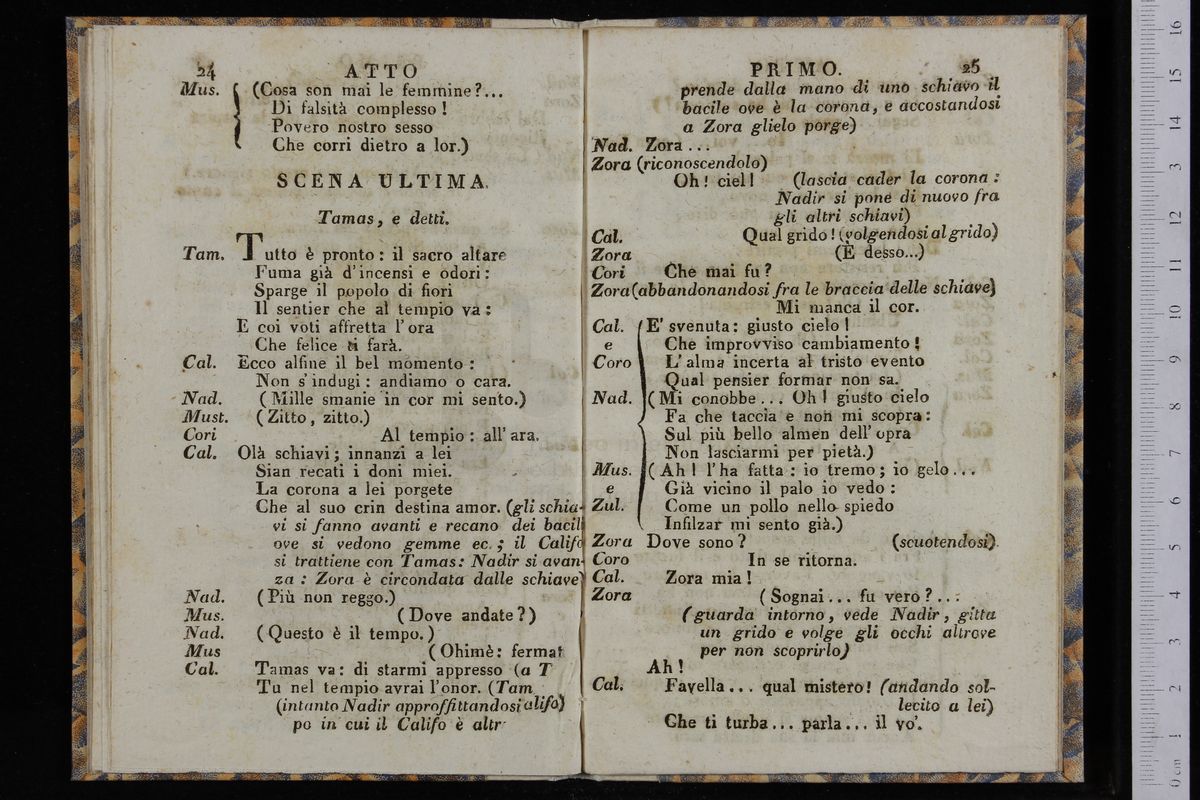 24 ATTO
Mus. (Cosa son mai le femmine?...
Di falsità complesso!
Povero nostro sesso
Che corri dietro a lor.)
SCENA ULTIMA.
Tamas, e detti.
Tam. Tutto è pronto: il sacro altare
Fuma già d'incensi e odori:
Sparge il popolo di fiori
Il sentier che al tempio va:
E coi voti affretta l'ora
Che felice ti farà.
Cal. Ecco alfine il bel momento:
Non s'indugi: andiamo o cara.
Nad. (Mille smanie in cor mi sento.)
Must. (Zitto, zitto.)
Cori Al tempio: all'ara.
Cal. Olà schiavi; innanzi a lei
Sian recati i doni miei.
La corona a lei porgete
Che al suo crin destina amor. (gli schia-
vi si fanno avanti e recano dei bacil
ove si vedono gemme ec.; il Califo
si trattiene con Tamas: Nadir si avan-
za: Zora è circondata dalle schiave)
Nad. (Più non reggo.)
Mus. (Dove andate?)
Nad. (Questo è il tempo.)
Mus (Ohimè: fermat
Cal. Tamas va: di starmi appresso (a T
Tu nel tempio avrai l'onor. (Tam
(intanto Nadir approffittandosi
po in cui il Califo è altr
PRIMO. 25
prende dalla mano di uno schiavo il
bacile ove è la corona, e accostandosi
a Zora glielo porge)
Nad. Zora...
Zora (riconoscendolo)
Oh! ciel! (lascia cader la corona:
Nadir si pone di nuovo fra
gli altri schiavi)
Cal. Qual grido! (volgendosi al grido)
Zora (È desso...)
Cori Che mai fu?
Zora (abbandonandosi fra le braccia delle schiave)
Mi manca il cor.
Cal. E' svenuta: giusto cielo!
e Che improvviso cambiamento!
Coro L'alma incerta al tristo evento
Qual pensier formar non sa.
Nad. (Mi conobbe... Oh! giusto cielo
Fa che taccia e non mi scopra:
Sul più bello almen dell'opra
Non lasciarmi per pietà.)
Mus. (Ah! l'ha fatta: io tremo; io gelo...
e Già vicino il palo io vedo:
Zul. Come un pollo nello spiedo
Infilzar mi sento già.)
Zora Dove sono? (scuotendosi)
Coro In se ritorna.
Cal. Zora mia!
Zora (Sognai... fu vero?...
(guarda intorno, vede Nadir, gitta
un grido e volge gli occhi altrove
per non scoprirlo)
Ah!
Cal. Favella... qual mistero! (andando sol-
lecito a lei)
Che ti turba... parla... il vo'.